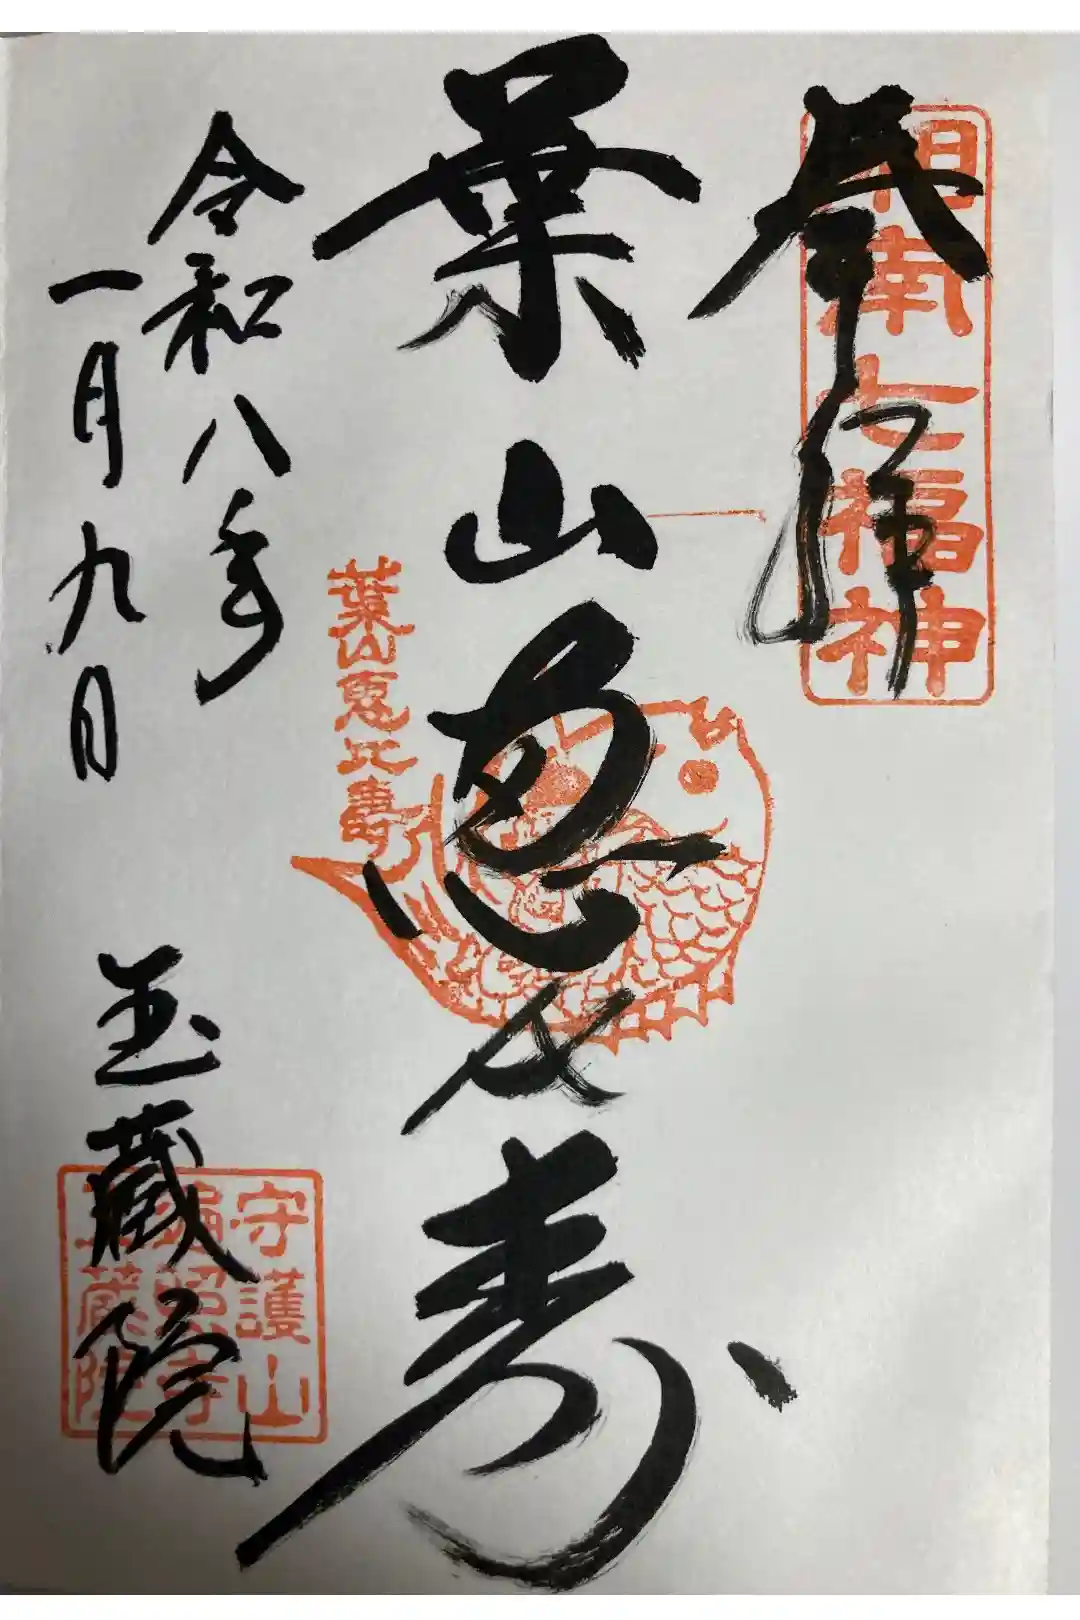 奉拝
相南七福神
葉山恵比寿
葉山恵比寿
令和八年
一月九日
玉蔵院
守護山
遍照寺
玉蔵院